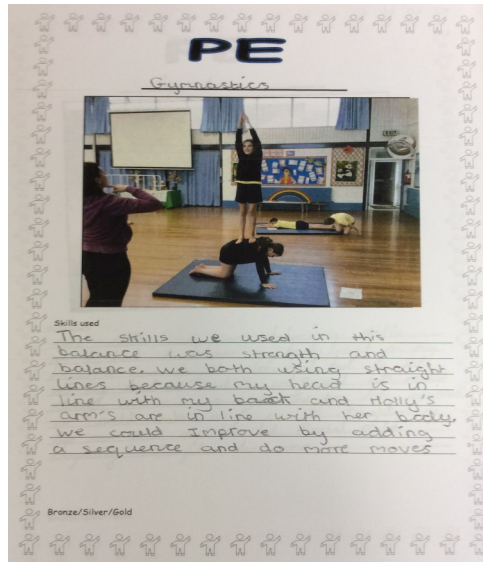 PE
Gymnastics
EXIT
Skills used
The skills we used in this
balance was strength and
balance. We both using straight
lines because my head is in
line with my back and Holly's
arm's are in line with her body.
We could Improve by adding
a sequence and do more moves
Bronze/Silver/Gold